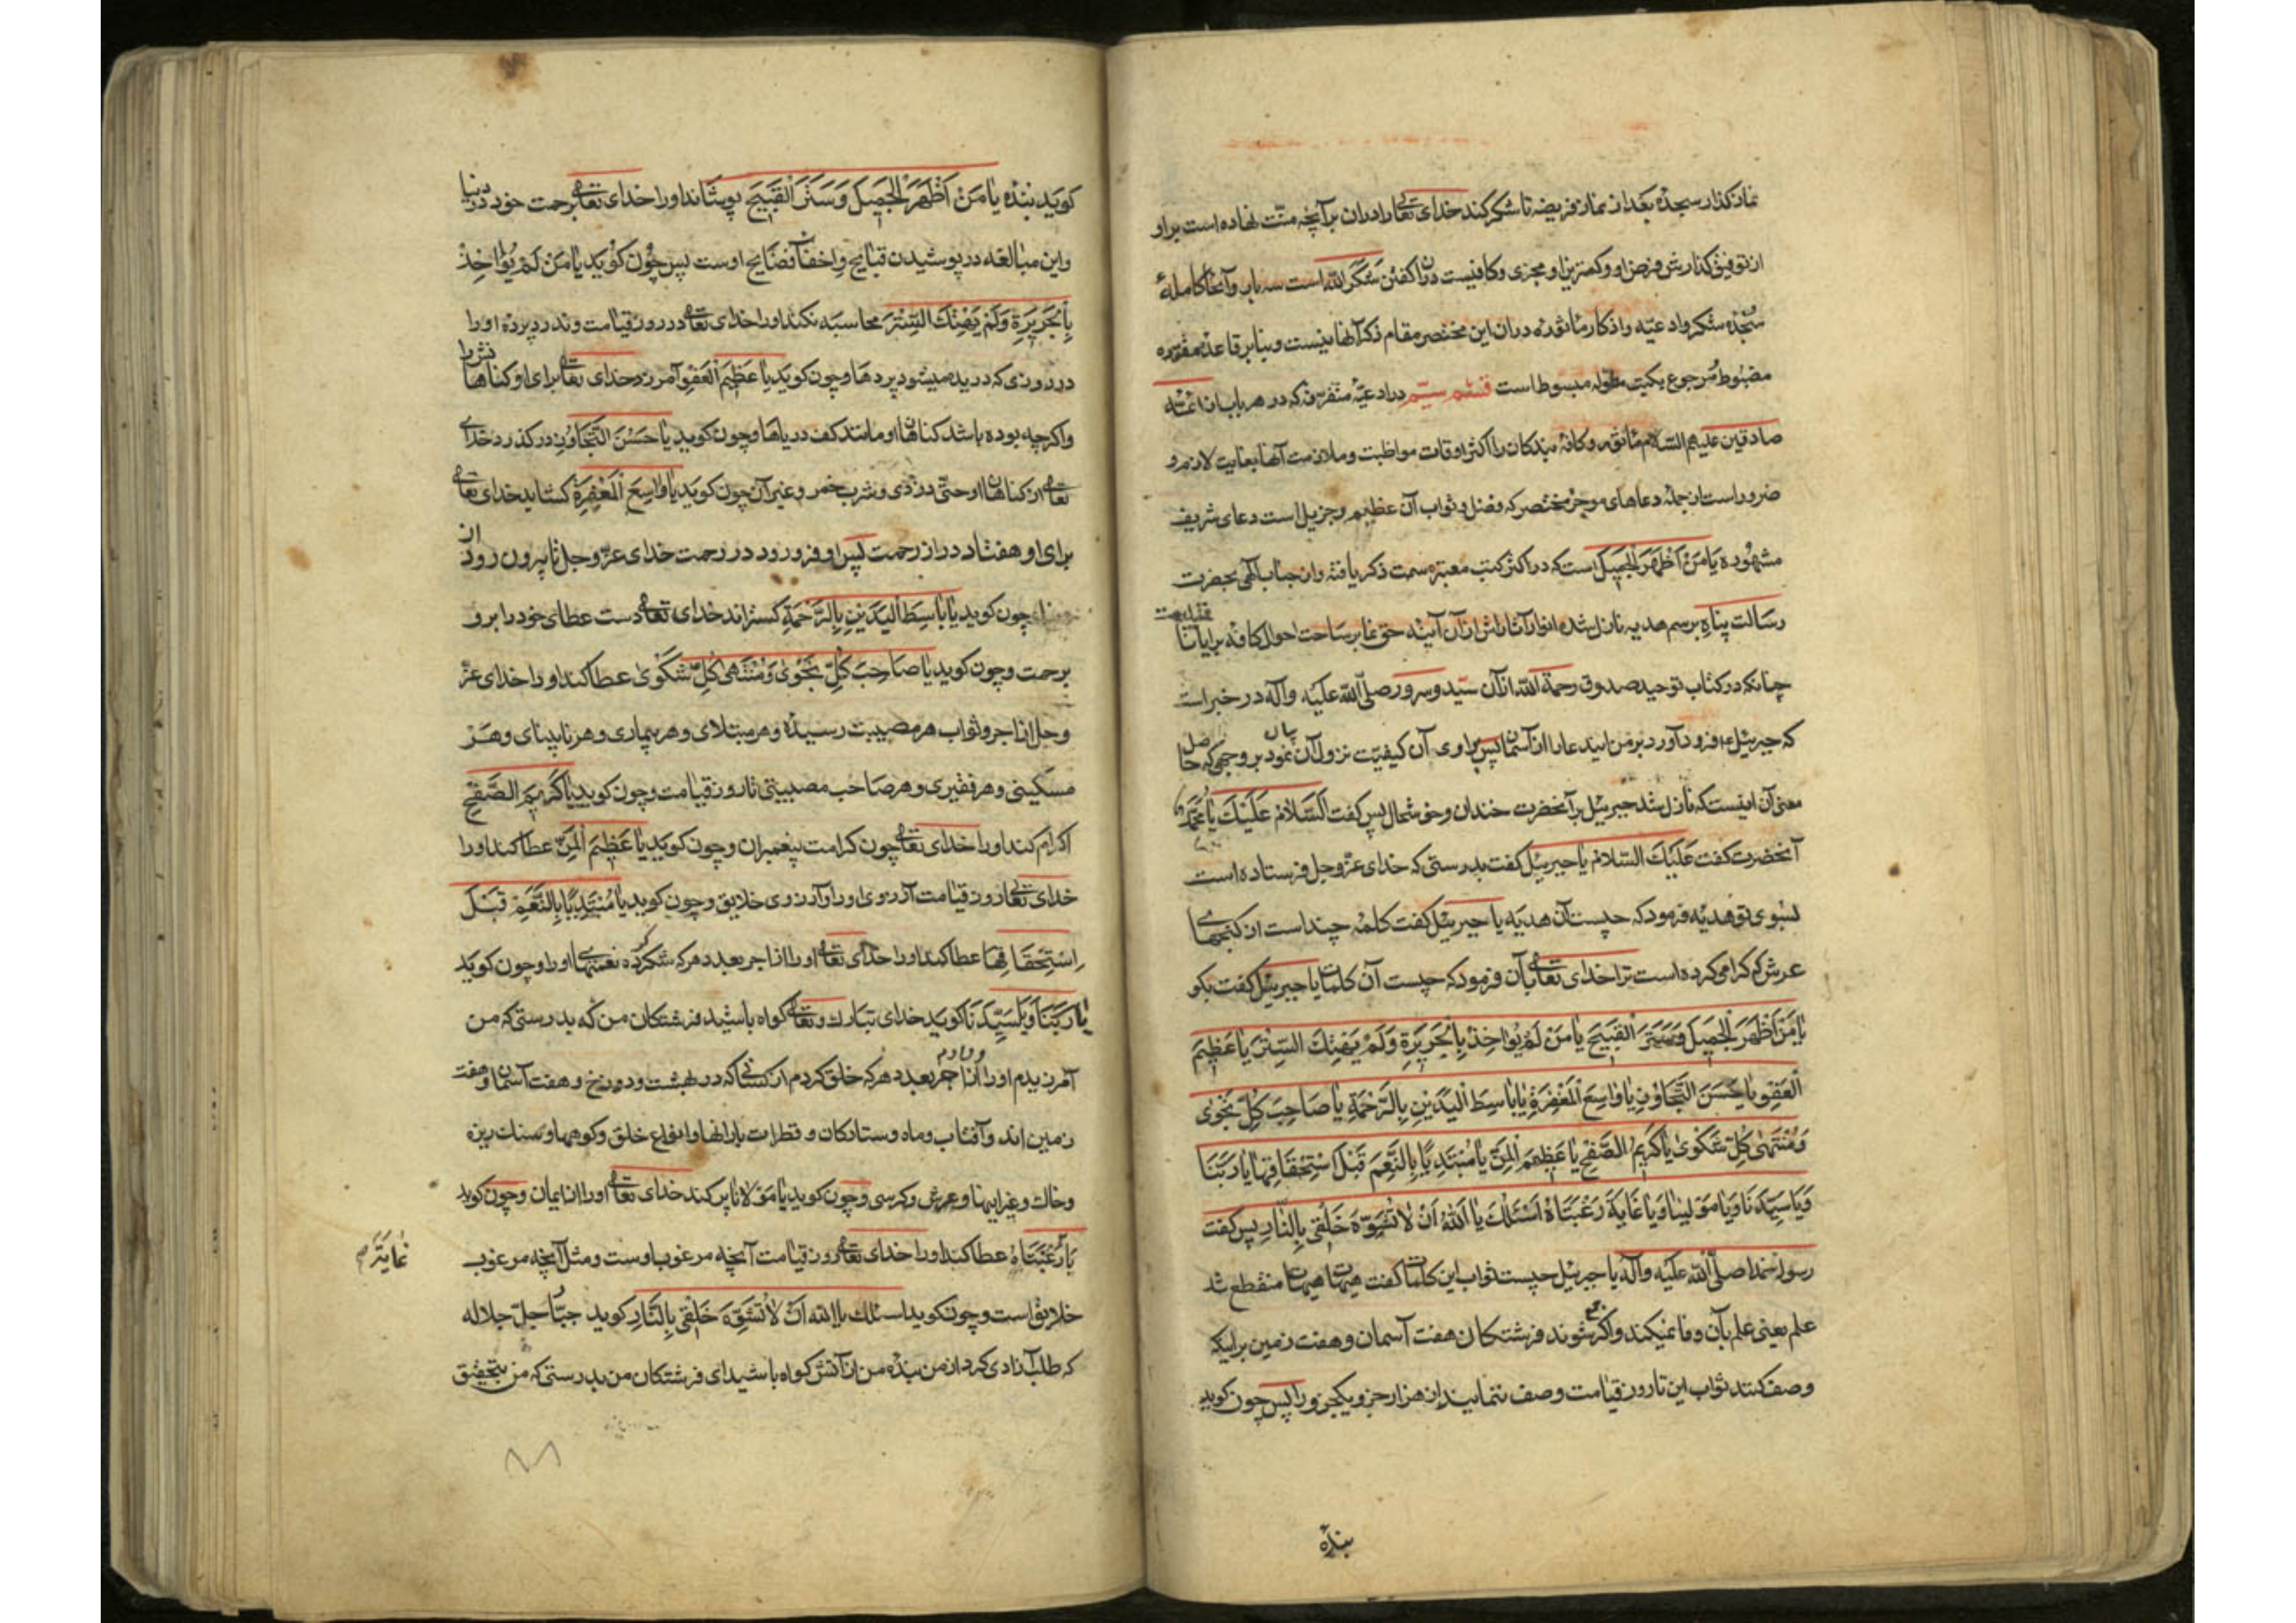 نماز کذار سجده بعد از نماز فریضه تا شکر کند خدای تعالی را دران بر آنچه منّت نهاده است براو
از توفیق کذارش فرض او و کمترین او مجزی و کافیست دران کفتن شکرًا لله است سه بار و آنجا کاملهٔ
سجده شکر وادعیّه واذکار مأثوره دران این مختصر مقام ذکر آنها نیست و بنابر قاعده مقرّره
مضبوط مرجوع بکتب مطوله مبسوط است قسم سیّم درادعیّه متفرقه که در هر باب از ائمّه
صادقین علیهم السّلام مأثوره و کافهٔ بندکان را اکثر اوقات مواظبت و ملازمت آنها بغایت لازم و
ضرور است از جمله دعاهای موجز مختصر که فضل و ثواب آن عظیم و جزیل است دعای شریف
مشهوره یا من اظهر الجمیل است که در اکثر کتب معتبره سمت ذکر یافته و از جناب الهی بحضرت
رسالت پناه برسم هدیه نازل شده انوار آثارش ازان آینه حق نما بر ساحت احوال کافه برایا تافته
چنانکه در کتاب توحید صدوق رحمة الله ازان سیّد و سرور صلّی الله علیه وآله در خبر است
که جبرئیل فرود آورد بر من ایندعا را از آسمان پس راوی آن کیفیّت نزول آن بیان نمود بر وجهی که حاصل
معنی آن اینست که نازل شد جبرئیل بر آنحضرت خندان و خوشحال پس کفت السّلام علیک یا محمّد
آنحضرت کفت علیک السّلام یا جبرئیل کفت بدرستی که خدای عزّ وجل فرستاده است
بسوی تو هدیّه فرمود که چیست آن هدیّه یا جبرئیل کفت کلمهٔ چند است از کنجهای
عرش که کرامی کرده است ترا خدای تعالی بآن فرمود که چیست آن کلمات یا جبرئیل کفت بکو
یا من اظهر الجمیل وستر القبیح یا من لم یؤاخذ بالجریرة ولم یهتک السّتر یا عظیم
العفو یا حسن التّجاوز یا واسع المغفرة یا باسط الیدین بالرّحمة یا صاحب کلّ نجوی
ومنتهی کلّ شکوی یا کریم الصّفح یا عظیم المنّ یا مبتدیًا بالنّعم قبل استحقاقها یا ربّنا
ویا سیّدنا ویا مولینا ویا غایة رغبتاه اسئلک یا الله ان لا تشوّه خلقی بالنّار پس کفت
رسول خدا صلّی الله علیه وآله یا جبرئیل چیست ثواب این کلمات کفت هیهات هیهات منقطع شد
علم یعنی علم بآن وفا نمیکند واکر جمع شوند فرشتکان هفت آسمان وهفت زمین بر اینکه
وصف کنند ثواب این تا روز قیامت وصف ننمایند از هزار جزو یکجزو را پس چون کوید
بنده
کوید بنده یا من اظهر الجمیل وستر القبیح بپوشاند اورا خدای تعالی برحمت خود در دنیا
واین مبالغه در پوشیدن قبایح واخفای فضایح اوست پس چون کوید یا من لم یؤاخذ
بالجریرة ولم یهتک السّتر محاسبه نکند اورا خدای تعالی در روز قیامت وندرد پرده اورا
در روزی که دریده میشود پردها وچون کوید یا عظیم العفو آمرزد خدای تعالی برای او کناهانش را
واکرچه بوده باشد کناهان او مانند کف دریاها وچون کوید یا حسن التّجاوز درکذرد خدای
تعالی از کناهان او حتّی دزدی و شرب خمر وغیر آن چون کوید یا واسع المغفرة کشاید خدای تعالی
برای او هفتاد در از رحمت پس او فرو رود در رحمت خدای عزّ وجل تا بیرون رود از
چون کوید یا باسط الیدین بالرّحمة کستراند خدای تعالی دست عطای خود را برو
برحمت وچون کوید یا صاحب کلّ نجوی ومنتهی کلّ شکوی عطا کند اورا خدای عزّ
وجل از اجر وثواب هر مصیبت رسیده وهر مبتلای وهر بیماری وهر نابینای وهر
مسکینی وهر فقیری وهر صاحب مصیبتی تا روز قیامت وچون کوید یا کریم الصّفح
اکرام کند اورا خدای تعالی چون کرامت پیغمبران وچون کوید یا عظیم المنّ عطا کند اورا
خدای تعالی روز قیامت آرزوی اورا وآرزوی خلایق وچون کوید یا مبتدیًا بالنّعم قبل
استحقاقها عطا کند اورا خدای تعالی اورا از اجر بعدد هر که شکر کرده نعمتهای اورا وچون کوید
یا ربّنا ویا سیّدنا کوید خدای تبارک وتعالی کواه باشید فرشتکان من که بدرستی که من
آمرزیدم اورا ودادم از اجر بعدد هر که خلق کردم از کسانی که در بهشت ودوزخ وهفت آسمان وهفت
زمین اند وآفتاب وماه وستارکان وقطرات بارانها وانواع خلق وکوهها وسنک ریزه
وخاک وغیر اینها وعرش وکرسی وچون کوید یا مولانا پر کند خدای تعالی اورا از ایمان وچون کوید
یا غایة رغبتاه عطا کند اورا خدای تعالی روز قیامت آنچه مرغوب اوست ومثل آنچه مرغوب
خلایق است وچون کوید اسئلک یا الله ان لا تشوّه خلقی بالنّار کوید جبّار جلّ جلاله
که طلب آزادی کرد از من بنده من از آتش کواه باشید ای فرشتکان من بدرستی که من بتحقیق